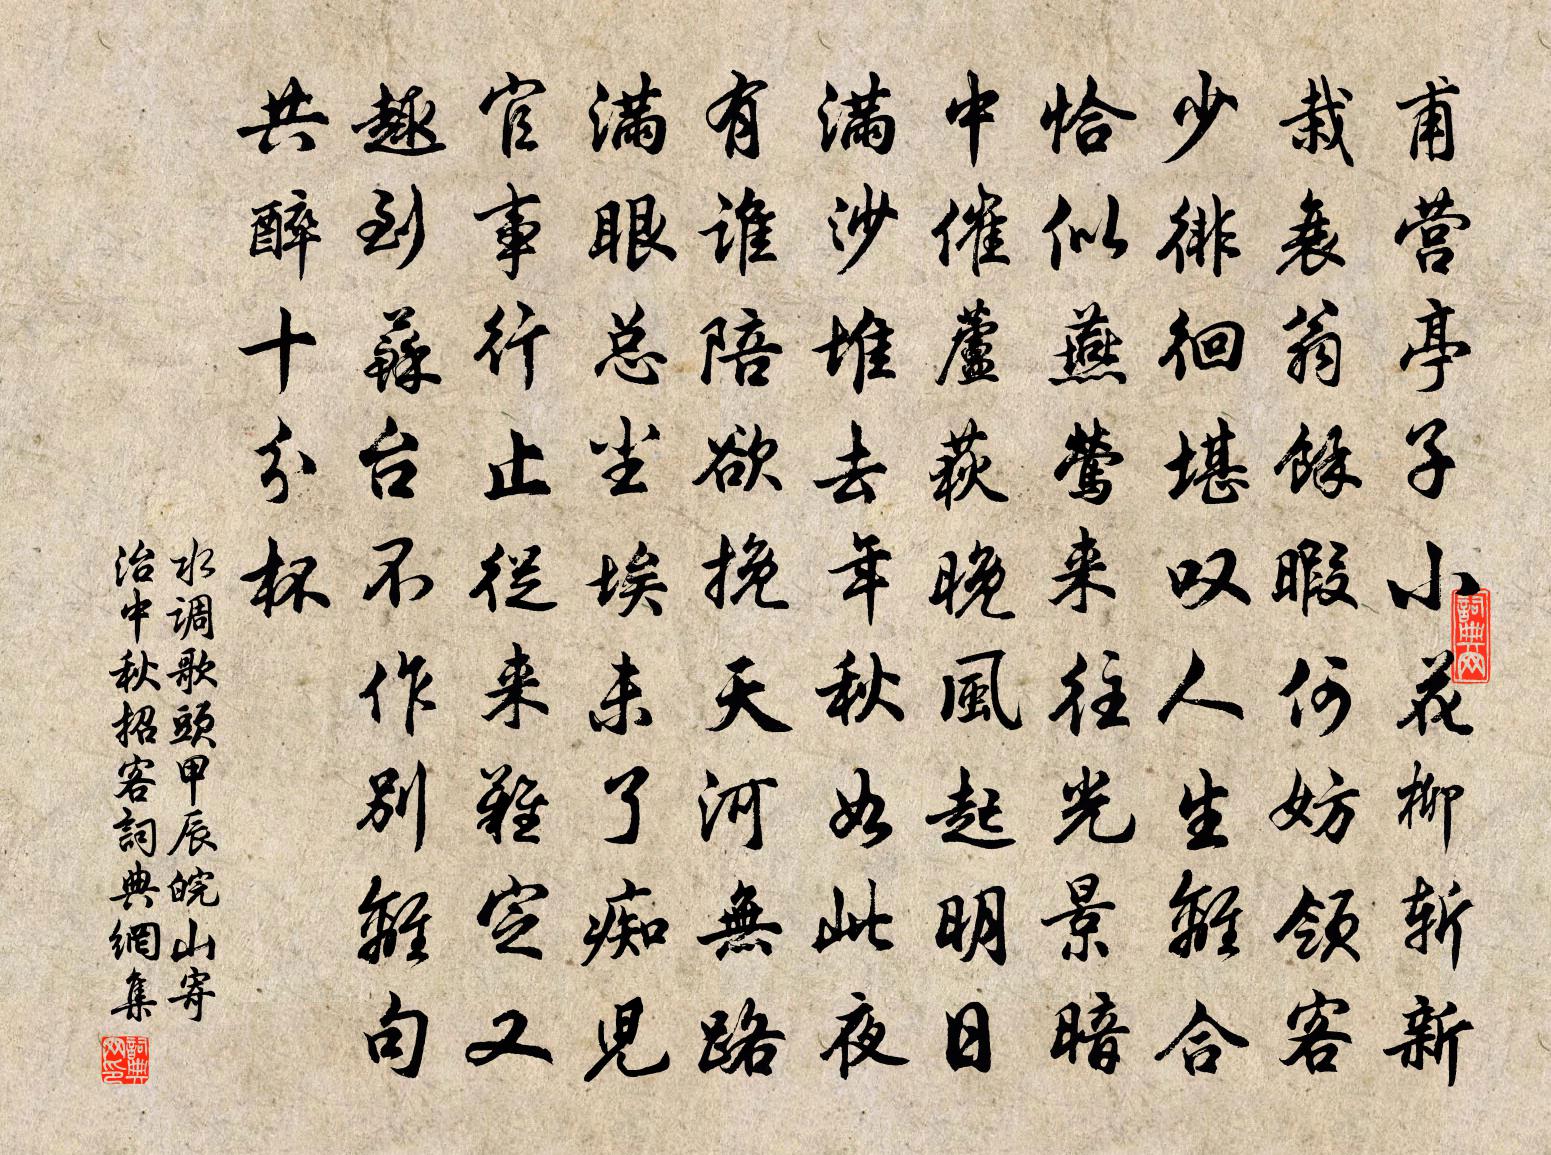 甫营亭子小花柳斩新
栽衰翁馀暇何妨领客
少徘徊堪叹人生离合
恰似燕莺来往光景暗
中催蘆荻晚風起明日
满沙堆去年秋如此夜
有谁陪欲挽天河無路
满眼总尘埃未了痴児
官事行止從来難定又
趣到蘇台不作别離句
共醉十分杯
水调歌頭甲辰皖山寄
治中秋招客詞典網集
詞典网
詞典网印